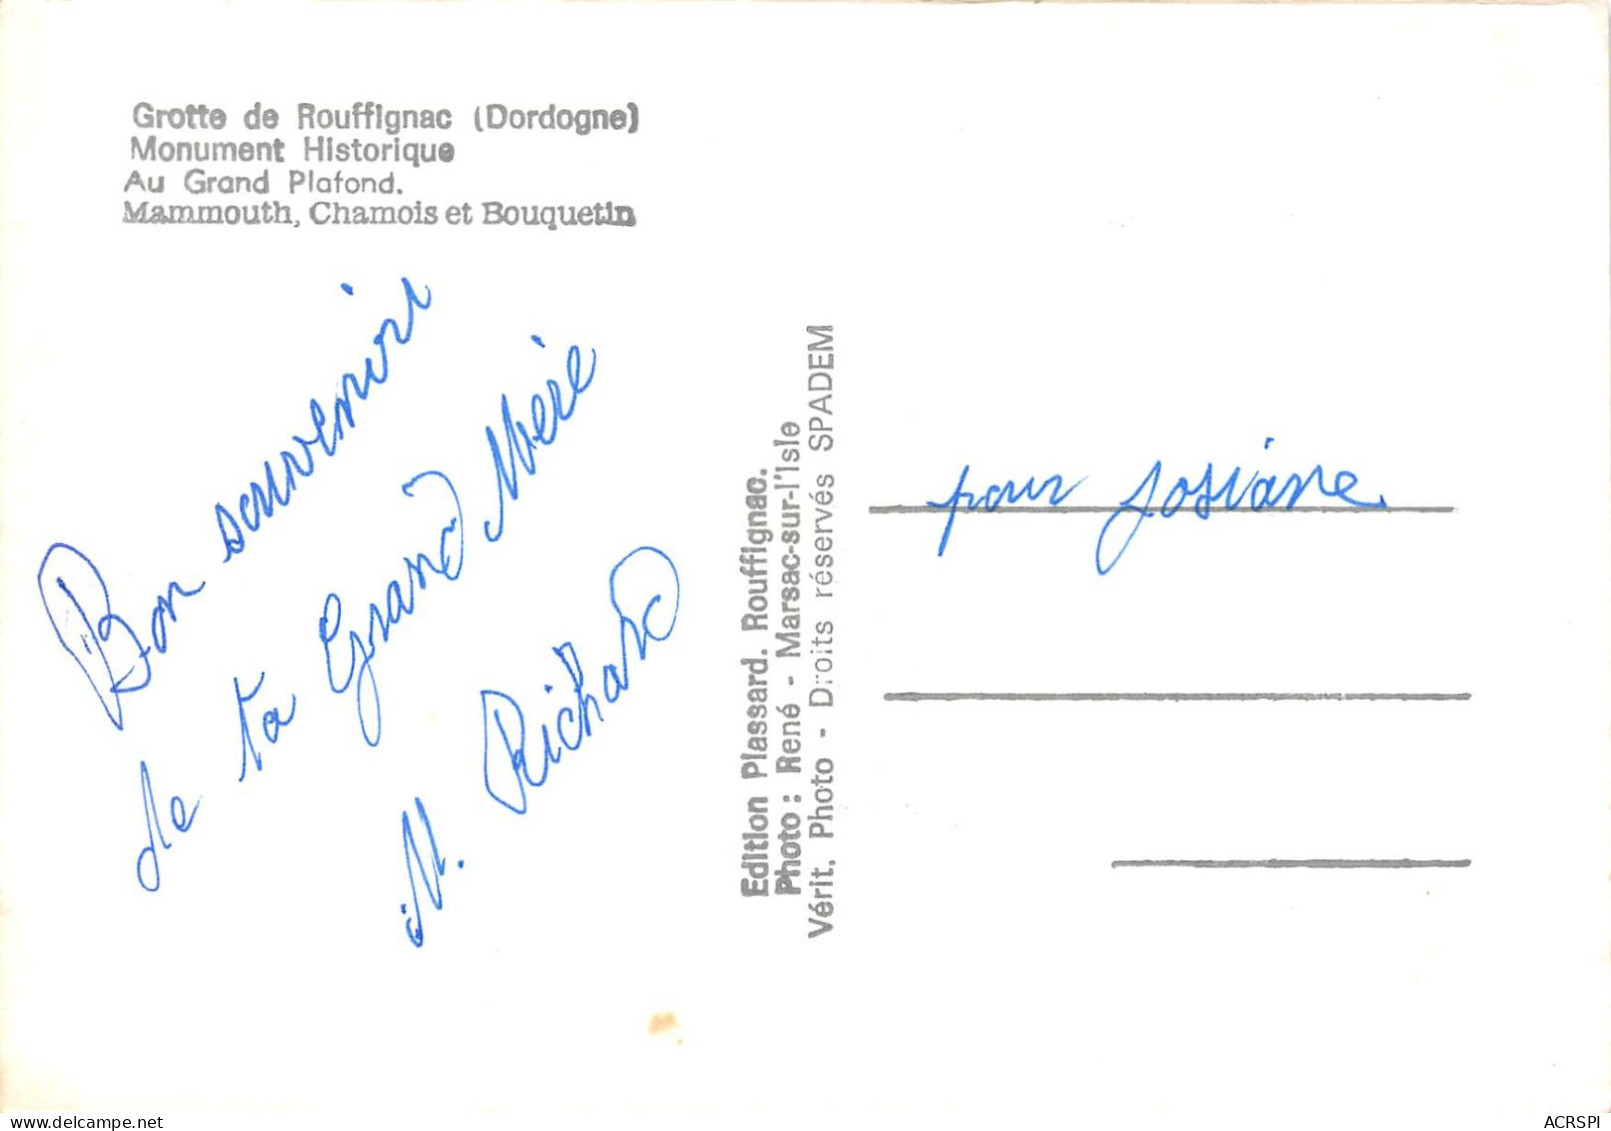 Grotte de Rouffignac (Dordogne)
Monument Historique
Au Grand Plafond.
Mammouth, Chamois et Bouquetin
Bon souvenir
de ta Grand Mère
M. Richard
Edition Plassard. Rouffignac.
Photo : René - Marsac-sur-l'Isle
Vérit. Photo - Droits réservés SPADEM
pour Josiane.
delcampe.net
ACRSPI